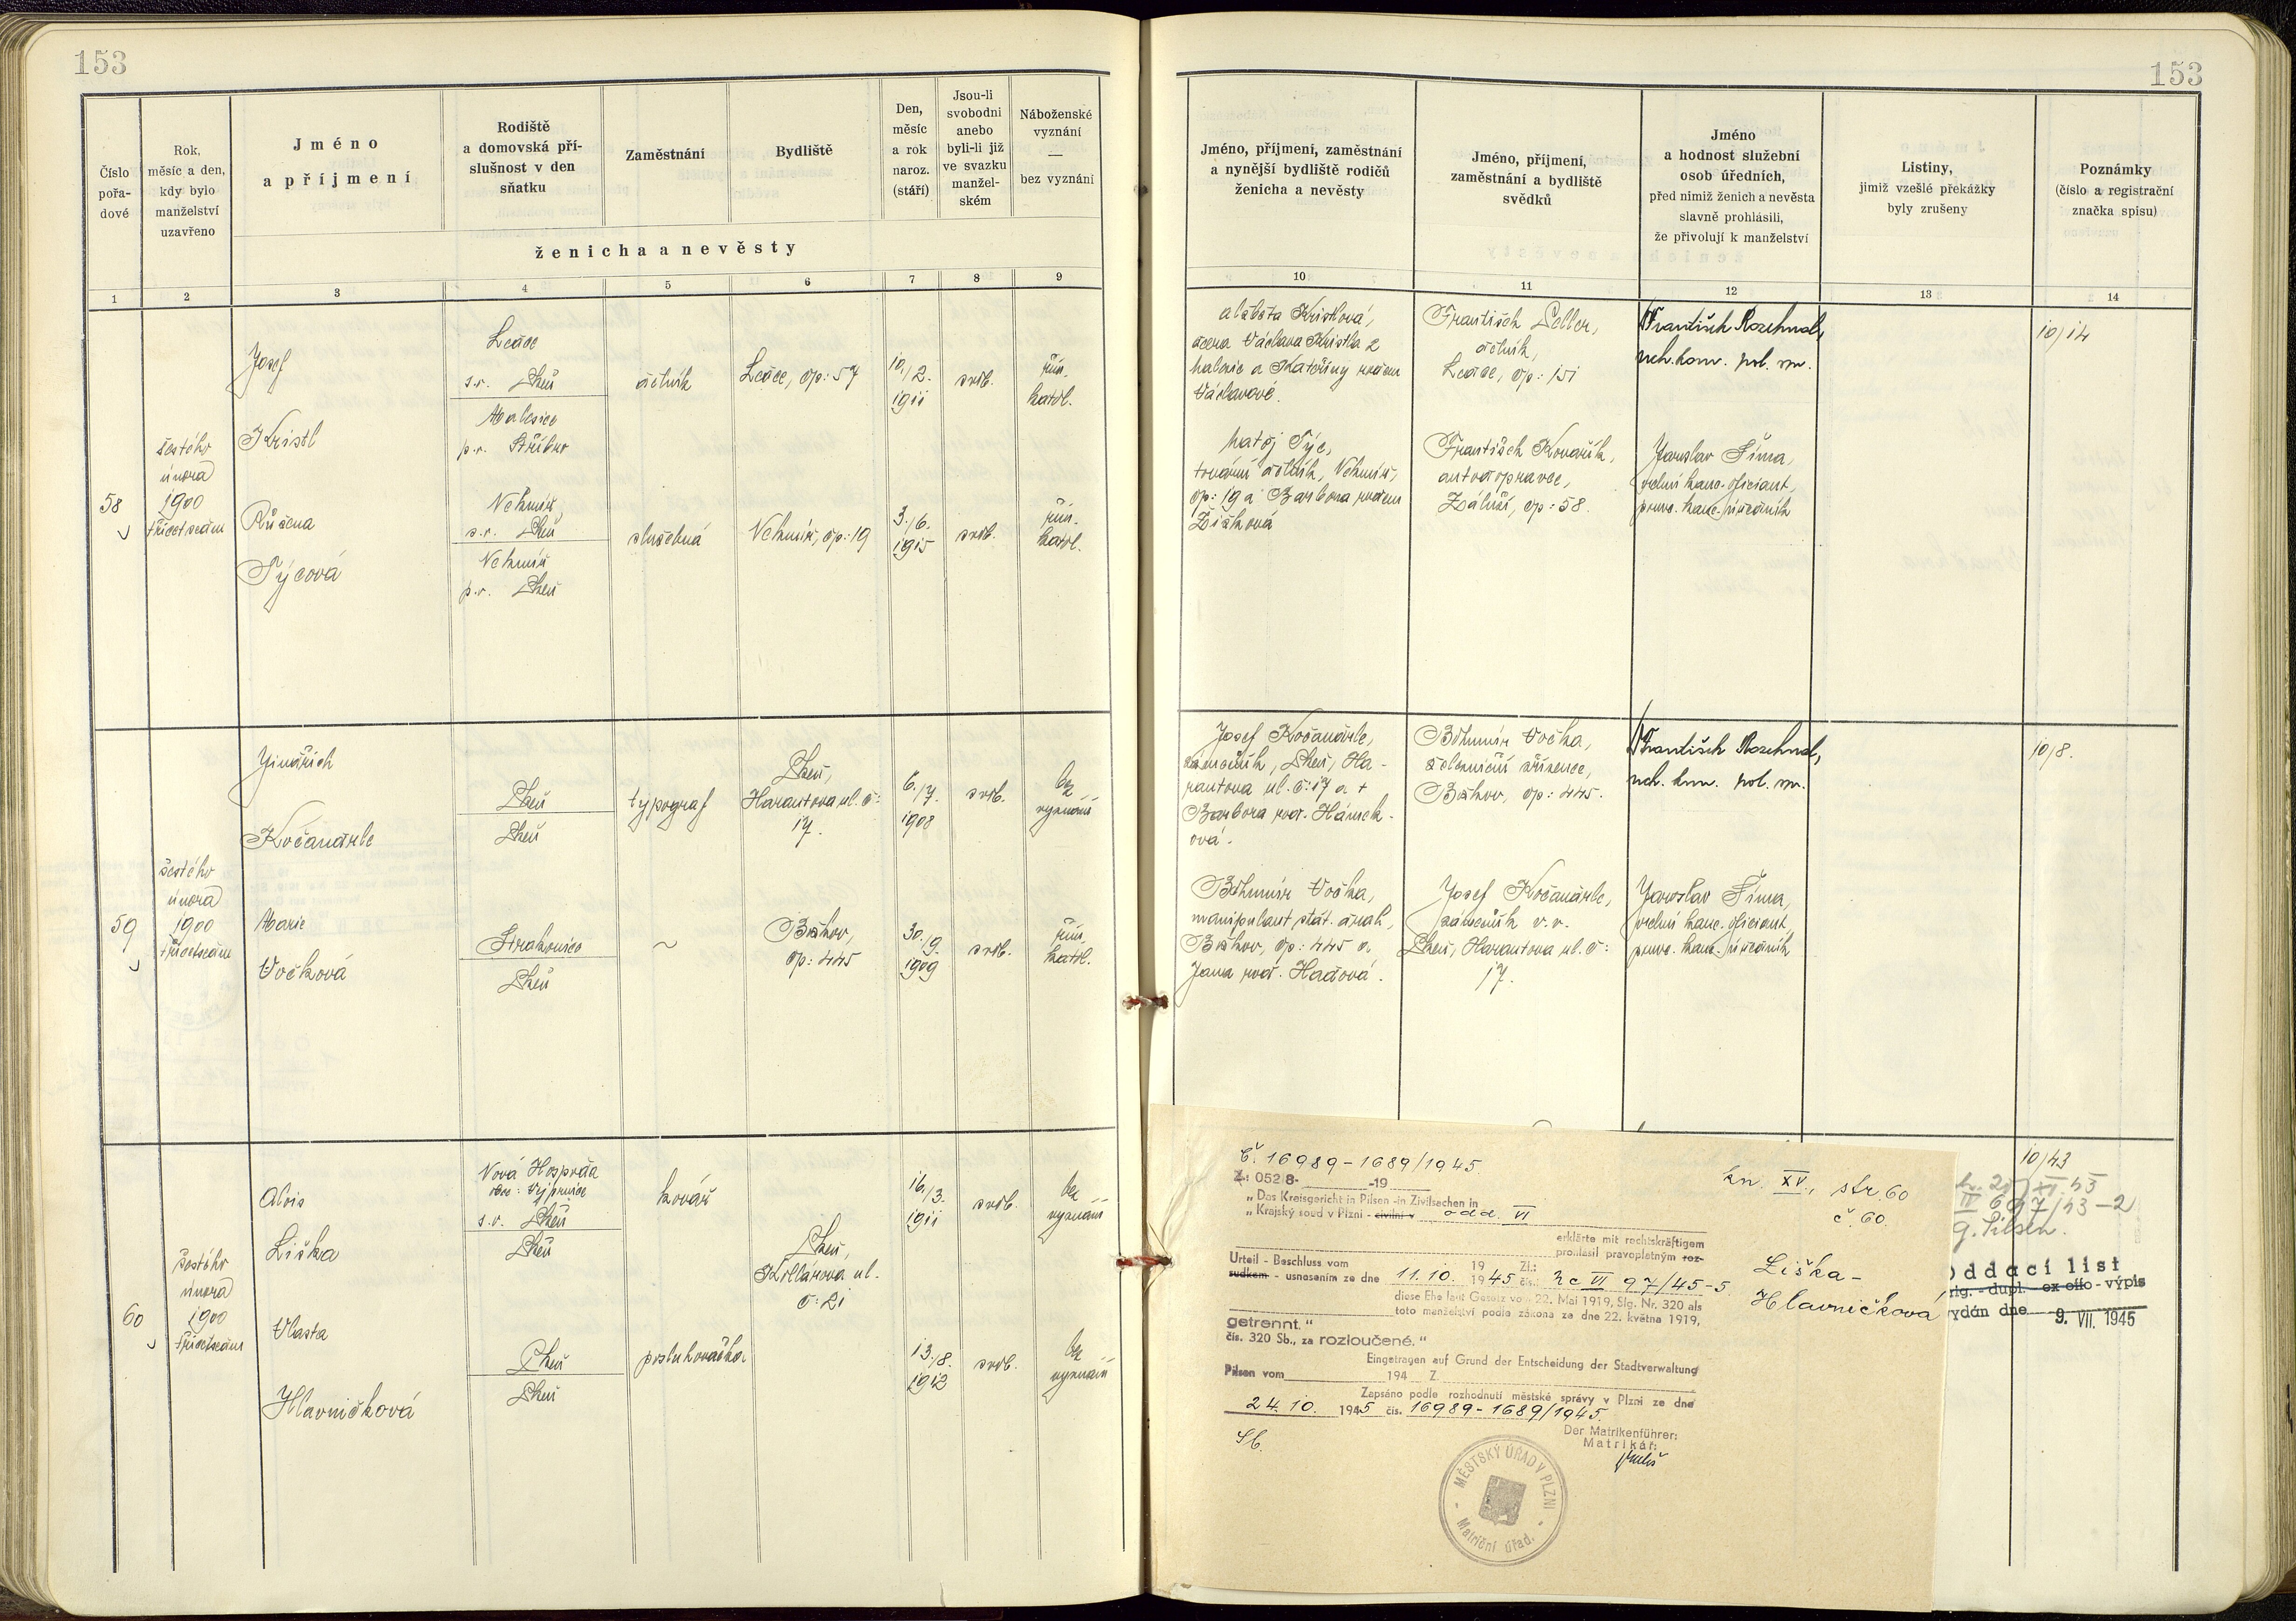 153
153
Číslo
pořa-
dové
Rok,
měsíc a den,
kdy bylo
manželství
uzavřeno
Jméno
a příjmení
Rodiště
a domovská pří-
slušnost v den
sňatku
Zaměstnání
Bydliště
Den,
měsíc
a rok
naroz.
(stáří)
Jsou-li
svobodni
anebo
byli-li již
ve svazku
manžel-
ském
Náboženské
vyznání
—
bez vyznání
ženicha a nevěsty
1 2 3 4 5 6 7 8 9
Jméno, příjmení, zaměstnání
a nynější bydliště rodičů
ženicha a nevěsty
Jméno, příjmení,
zaměstnání a bydliště
svědků
Jméno
a hodnost služební
osob úředních,
před nimiž ženich a nevěsta
slavně prohlásili,
že přivolují k manželství
Listiny,
jimiž vzešlé překážky
byly zrušeny
Poznámky
(číslo a registrační
značka spisu)
10 11 12 13 14
58
šestého
února
1900
třicetsedm
Josef
Kristl
Ledce
s.o. Plzeň
Malesice
p.o. Stříbro
dělník
Ledce, čp: 57
10./2.
1911
svob.
řím.
katol.
Růžena
Týcová
Nekmíř,
s.o. Plzeň
Nekmíř
p.o. Plzeň
služebná
Nekmíř, čp: 19
3./6.
1915
svob.
řím.
katol.
Alžběta Kristlová,
dcera Václava Kristla z
a Kateřiny rozen
Václavové.
Matěj Týc,
tovární dělník, Nekmíř,
čp: 19 a Barbora rozen
Žižková
František Peller,
dělník,
Ledce, čp: 151
František Kovařík,
autodopravce,
Záluží, čp: 58.
František Rozehnal,
Jaroslav Šíma,
vrchní kanc. oficiant,
prov. kanc. úředník
10/14
59
šestého
února
1900
třicetsedm
Jindřich
Kočandrle
Plzeň
Plzeň
typograf
Plzeň,
Harantova ul. č:
17.
6./7.
1908
svob.
bez
vyznání
Marie
Vočková
Strakonice
Plzeň
~
Bžkov,
čp: 445
30./9.
1909
svob.
řím.
katol.
Josef Kočandrle,
zámečník, Plzeň, Ha-
rantova ul. č: 17 a +
Barbora roz. Hánech-
ová.
Bohumír Vočka,
manipulant stát. drah,
Bžkov, čp: 445 a
Jana roz. Hadová.
Bohumír Vočka,
železniční zřízenec,
Bžkov, čp: 445.
Josef Kočandrle,
zámečník v.v.
Plzeň, Harantova ul. č:
17.
František Rozehnal,
Jaroslav Šíma,
vrchní kanc. oficiant,
prov. kanc. úředník
10/8.
60
šestého
února
1900
třicetsedm
Alois
Liška
Nová Hospoda
obec: Výprnice
s.o. Plzeň
Plzeň
kovář
Plzeň,
Kollárova ul.
č: 21
16./3.
1911
svob.
bez
vyznání
Vlasta
Hlavničková
Plzeň
Plzeň
posluhovačka
13./8.
1912
svob.
bez
vyznání
10/43
Oddací list
- dupl. - ex offo - výpis
vydán dne 9. VII. 1945
Č. 16989-1689/1945.
Z: 052/8- -19
„Das Kreisgericht in Pilsen -in Zivilsachen in
„Krajský soud v Plzni - civilní v odd. VI
erklärte mit rechtskräftigem
prohlásil pravoplatným roz-
Urteil - Beschluss vom 19 Zl.:
sudkem - usnesením ze dne 11.10. 1945 čís.: Nc VI 97/45-5
diese Ehe laut Gesetz vom 22. Mai 1919, Slg. Nr. 320 als
toto manželství podle zákona ze dne 22. května 1919,
getrennt."
čís. 320 Sb., za rozloučené."
Eingetragen auf Grund der Entscheidung der Stadtverwaltung
Pilsen vom 194 Z.
Zapsáno podle rozhodnutí městské správy v Plzni ze dne
24.10. 1945 čís. 16989-1689/1945.
Der Matrikenführer:
Matrikář:
kn. XV., str. 60
č. 60.
Liška-
Hlavničková
MĚSTSKÝ ÚŘAD V PLZNI
Matriční úřad.